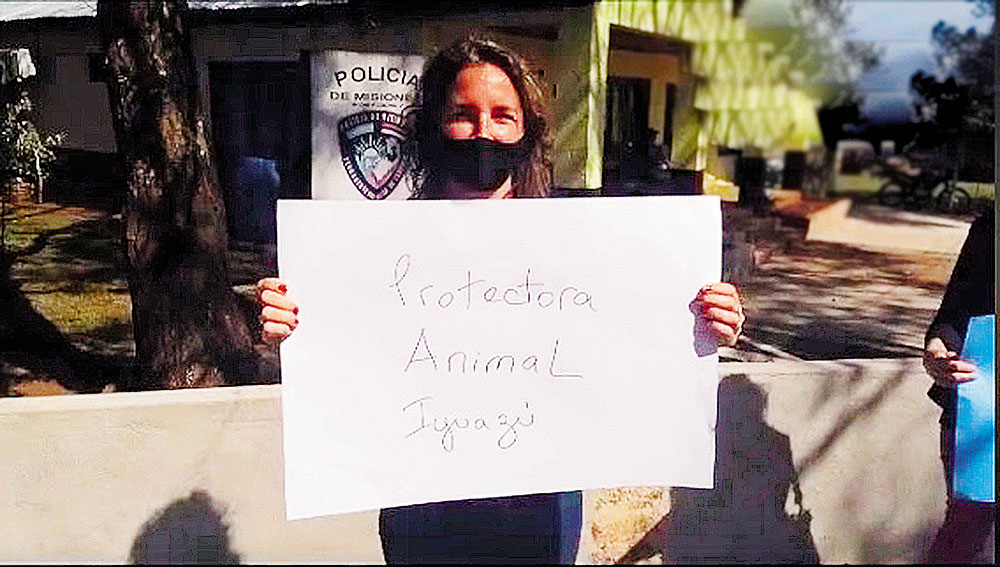 POLICIA
DE MISIONES
Protectora
AnimaL
Iguazú